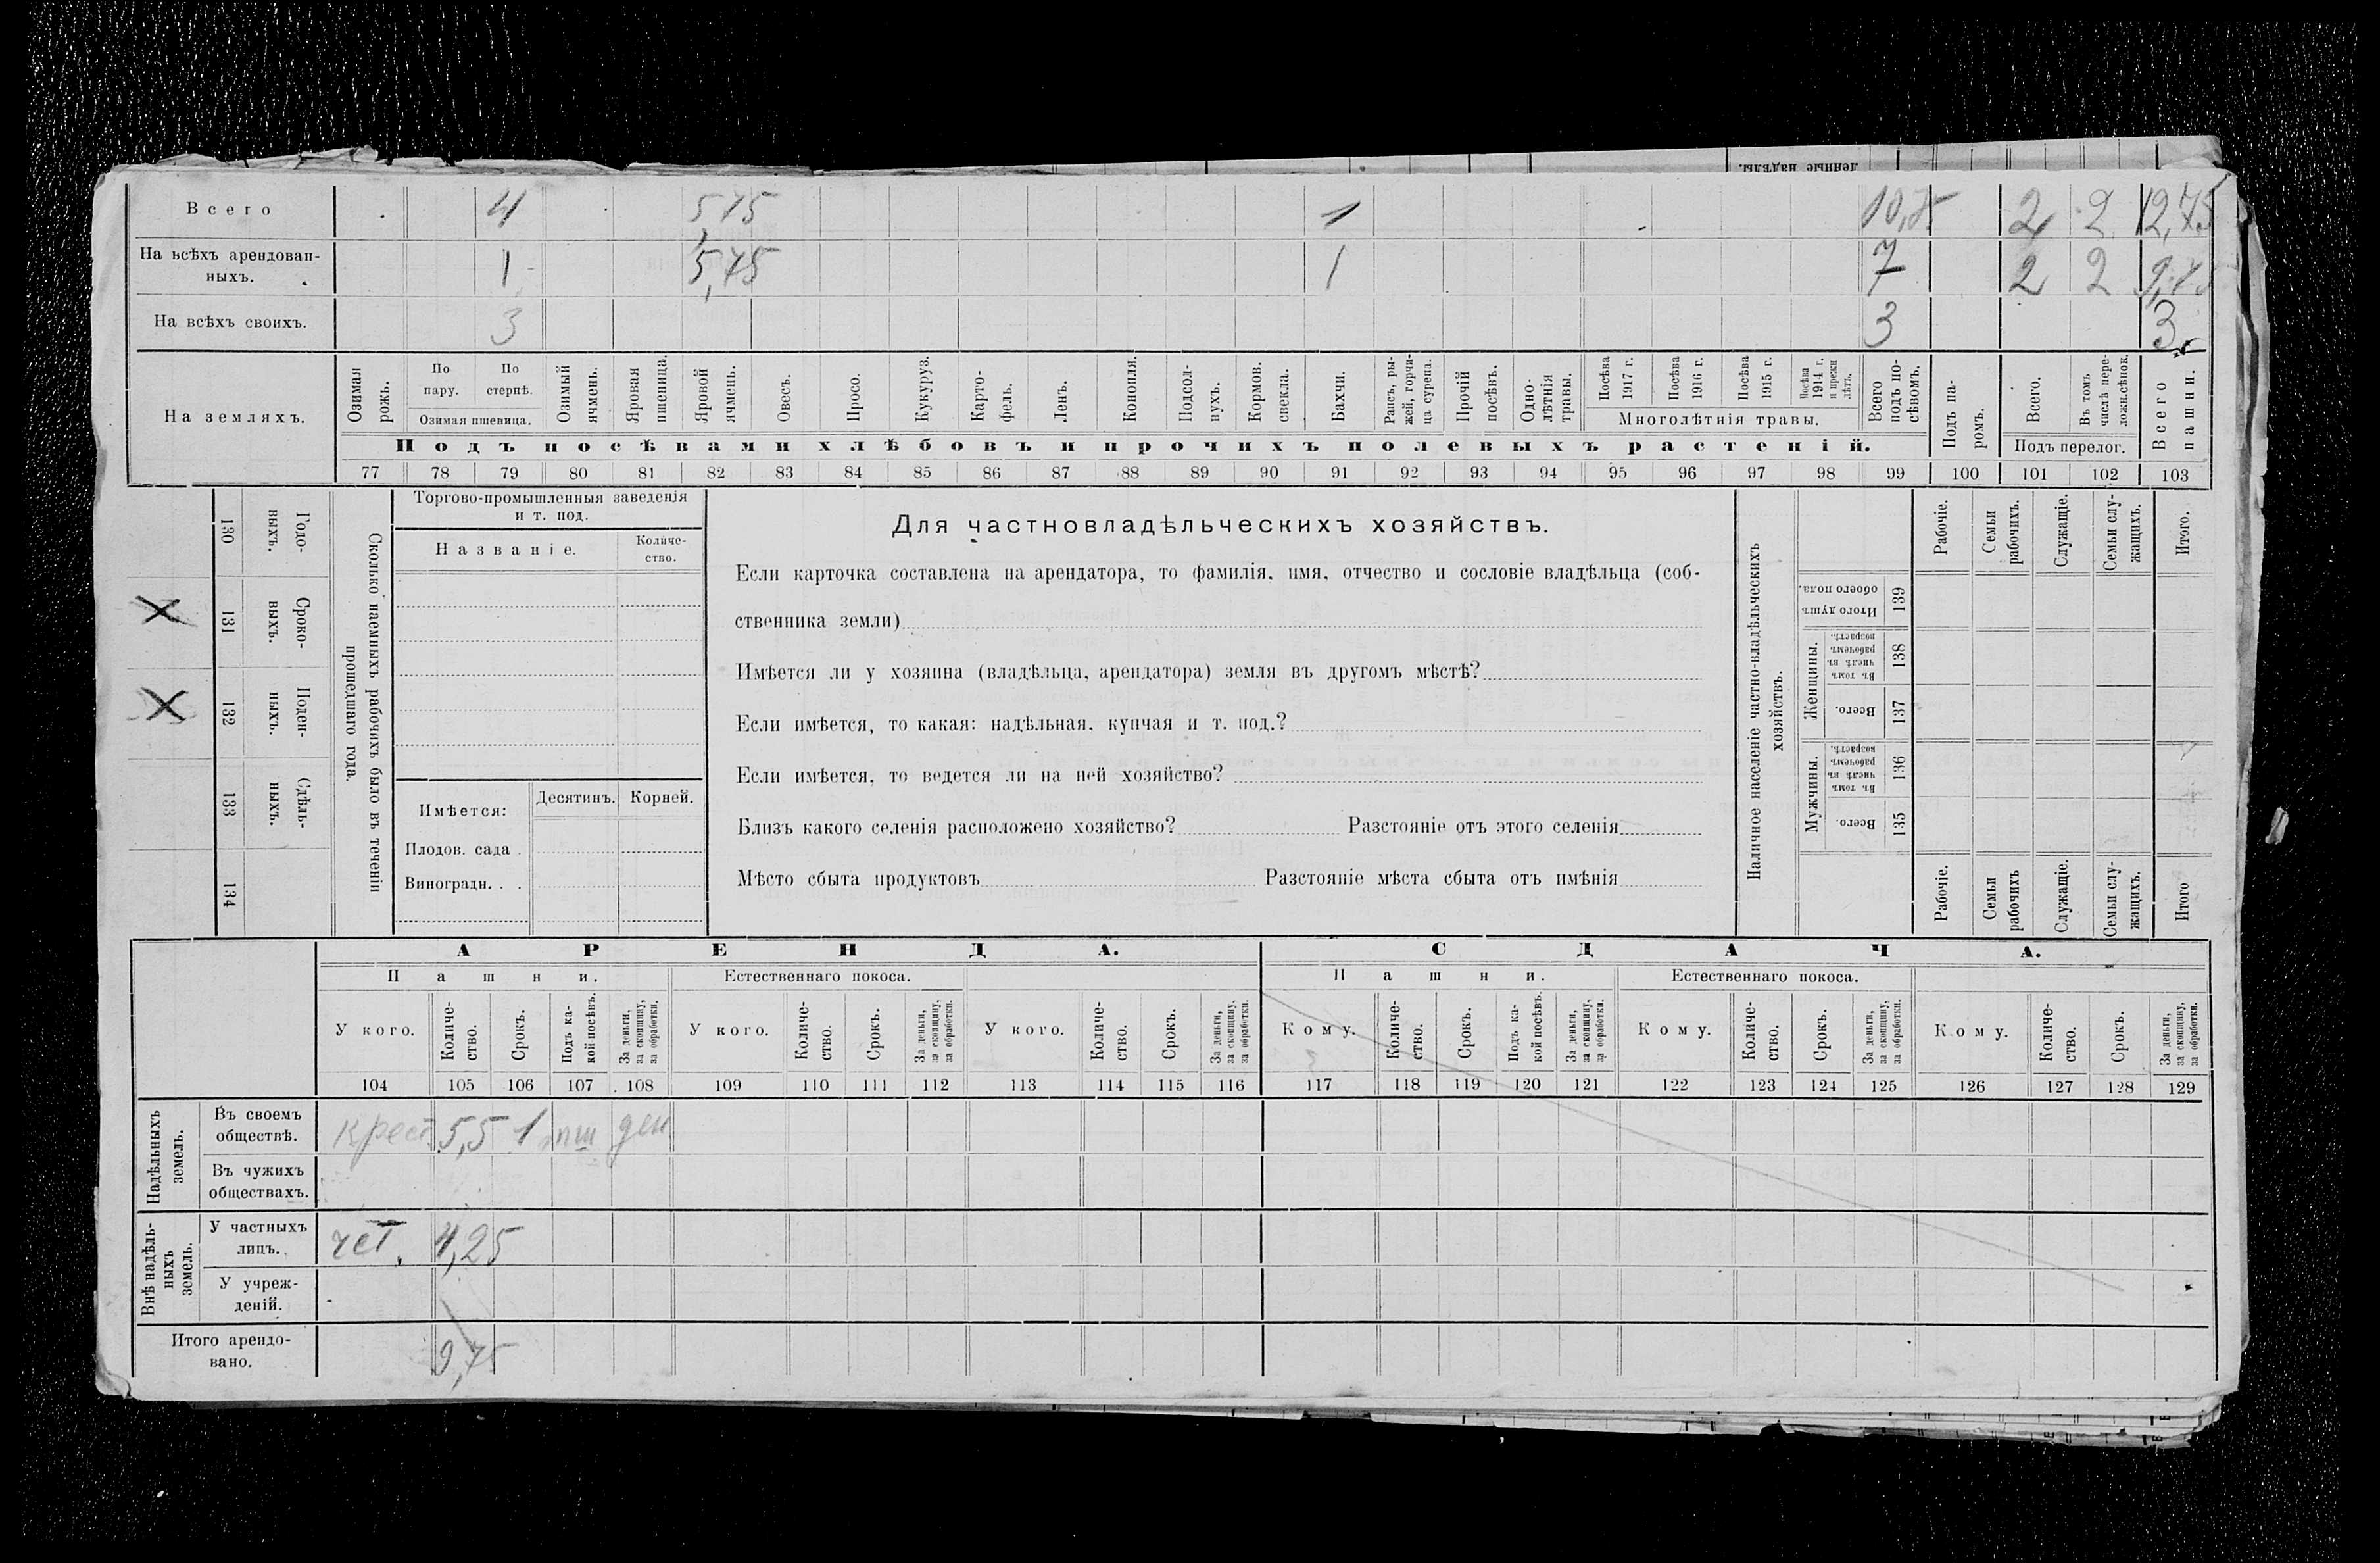 ленные надѣлы.
Всего 4 5,75 1 2 2 12,75
На всѣхъ арендованныхъ. 1 5,75 1 7 2 2 9,75
На всѣхъ своихъ. 3 3 3
На земляхъ.
Озимая рожь.
По пару.
По стернѣ.
Озимая пшеница.
Озимый ячмень.
Яровая пшеница.
Яровой ячмень.
Овесъ.
Просо.
Кукуруз.
Карто-
фель.
Ленъ.
Конопля.
Подсол-
нухъ.
Кормов.
свекла.
Бахчи.
Рапсъ, ры-
жей, горчи-
ца сурепа.
Прочій
посѣвъ.
Одно-
лѣтнія
травы.
Посѣва
1917 г.
Посѣва
1916 г.
Посѣва
1915 г.
Посѣва
1914 г.
и прежн
лѣтъ.
Многолѣтнія травы.
Всего
подъ по-
сѣвомъ.
Подъ па-
ромъ.
Всего.
Въ томъ
числѣ пере-
ложн.сѣнок.
Подъ перелог.
Всего
пашни.
Подъ посѣвами хлѣбовъ и прочихъ полевыхъ растеній.
77 78 79 80 81 82 83 84 85 86 87 88 89 90 91 92 93 94 95 96 97 98 99 100 101 102 103
Сколько наемныхъ рабочихъ было въ теченіи
прошедшаго года.
Годо-
выхъ.
130
Сроко-
выхъ.
131
X
Поден-
ныхъ.
132
X
Сдѣль-
ныхъ.
133
134
Торгово-промышленныя заведенія
и т. под.
Названіе.
Количе-
ство.
Имѣется:
Десятинъ.
Корней.
Плодов. сада .
Виноградн. . .
Для частновладѣльческихъ хозяйствъ.
Если карточка составлена на арендатора, то фамилія, имя, отчество и сословіе владѣльца (соб-
ственника земли)
Имѣется ли у хозяина (владѣльца, арендатора) земля въ другомъ мѣстѣ?
Если имѣется, то какая: надѣльная, купчая и т. под.?
Если имѣется, то ведется ли на ней хозяйство?
Близъ какого селенія расположено хозяйство? Разстояніе отъ этого селенія
Мѣсто сбыта продуктовъ Разстояніе мѣста сбыта отъ имѣнія
Наличное населеніе частно-владѣльческихъ
хозяйствъ.
Рабочіе.
Семьи
рабочихъ.
Служащіе.
Семьи слу-
жащихъ.
Итого.
Итого душъ
обоего пола.
139
Женщины.
Въ томъ
числѣ въ
рабочемъ
возрастѣ.
138
Всего.
137
Мужчины.
Въ томъ
числѣ въ
рабочемъ
возрастѣ.
136
Всего.
135
Рабочіе.
Семьи
рабочихъ
Служащіе.
Семьи слу-
жащихъ.
Итого
АРЕНДА. СДАЧА.
Пашни. Естественнаго покоса. Пашни. Естественнаго покоса.
У кого.
Количе-
ство.
Срокъ.
Подъ ка-
кой посѣвъ.
За деньги,
за скопщину,
за обработки.
У кого.
Количе-
ство.
Срокъ.
За деньги,
за скопщину,
за обработки.
У кого.
Количе-
ство.
Срокъ.
За деньги,
за скопщину,
за обработки.
Кому.
Количе-
ство.
Срокъ.
Подъ ка-
кой посѣвъ.
За деньги,
за скопщину,
за обработки.
Кому.
Количе-
ство.
Срокъ.
За деньги,
за скопщину,
за обработки.
Кому.
Количе-
ство.
Срокъ.
За деньги,
за скопщину,
за обработки.
104 105 106 107 108 109 110 111 112 113 114 115 116 117 118 119 120 121 122 123 124 125 126 127 128 129
Надѣльныхъ
земель.
Въ своемъ
обществѣ.
крест. 5,5 1 пш ден
Въ чужихъ
обществахъ.
Внѣ надѣль-
ныхъ
земель.
У частныхъ
лицъ.
4,25
У учреж-
деній.
Итого арендо-
вано.
9,75